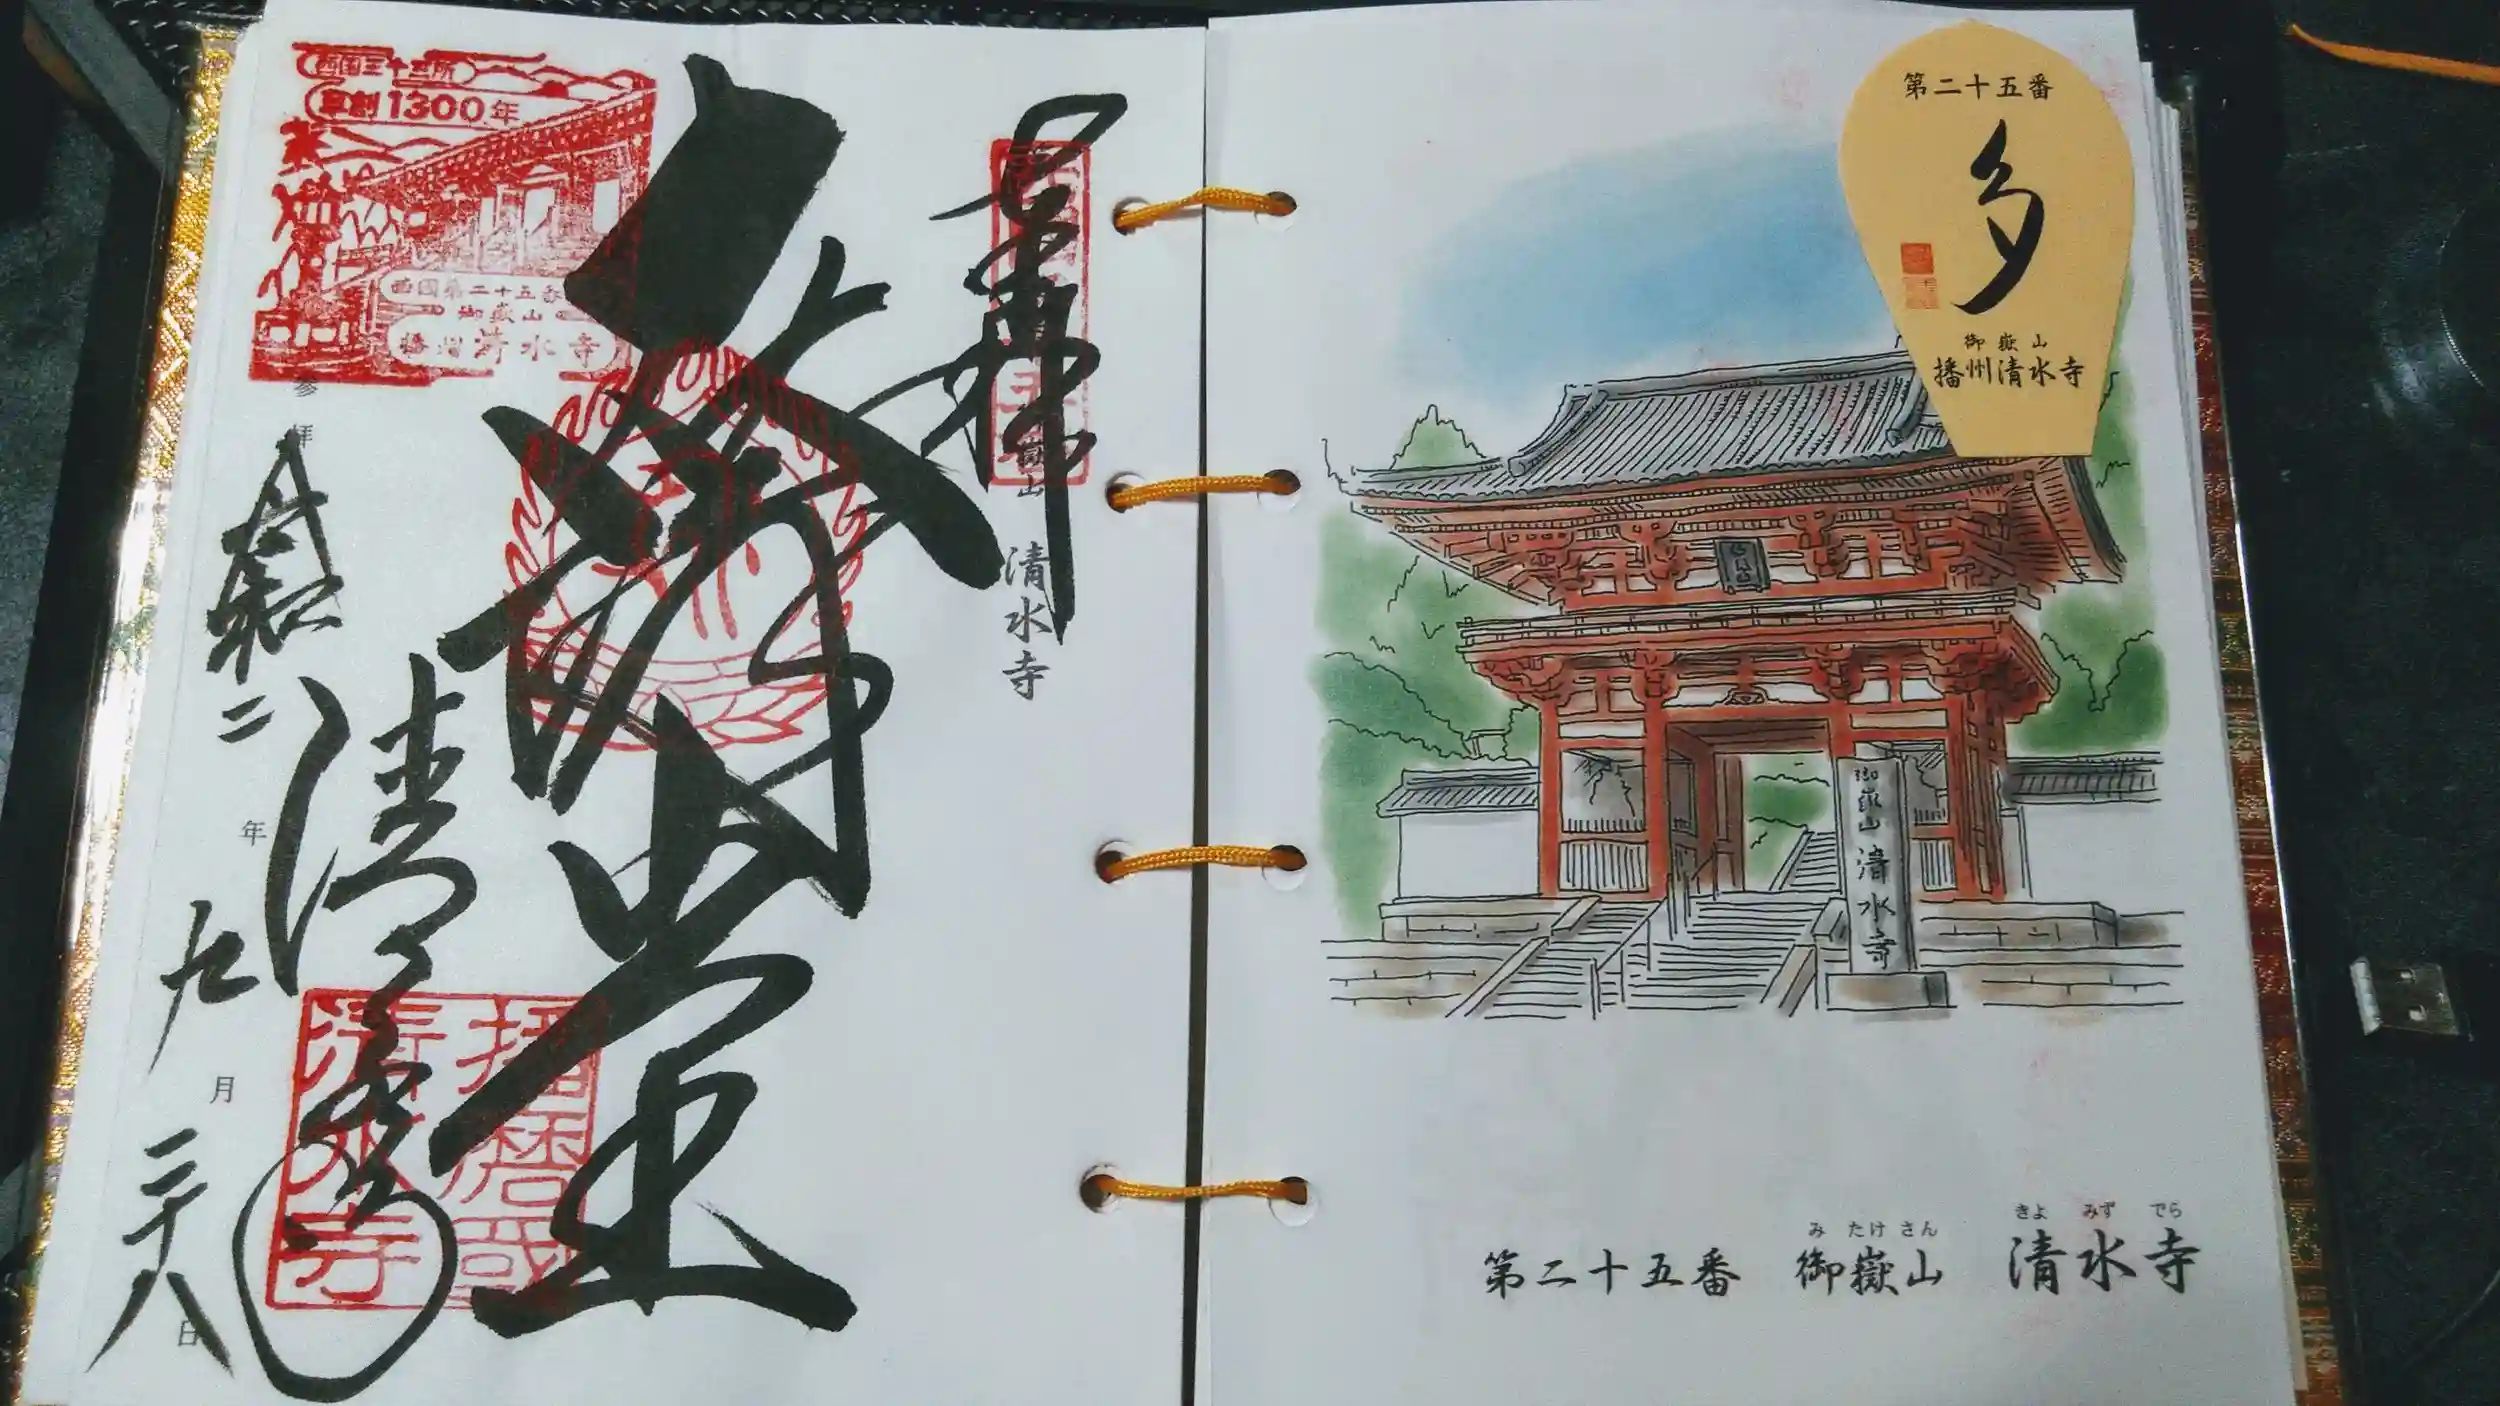 西国三十三所
草創1300年
西國第二十五番
御嶽山
播州清水寺
奉拝
大講堂
清水寺
参拝
令和二年九月二十八日
清水寺
播磨國
清水寺
第二十五番
多
御嶽山
播州清水寺
御嶽山清水寺
み たけ さん
きよ みず でら
第二十五番 御嶽山 清水寺